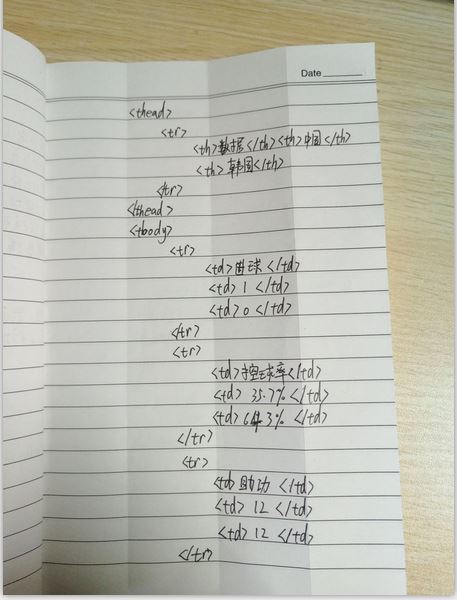 Date
<thead>
<tr>
<th>数据</th><th>中国</th>
<th>韩国</th>
</tr>
</thead>
<tbody>
<tr>
<td>进球</td>
<td>1</td>
<td>0</td>
</tr>
<tr>
<td>控球率</td>
<td>35.7%</td>
<td>64.3%</td>
</tr>
<tr>
<td>助功</td>
<td>12</td>
<td>12</td>
</tr>